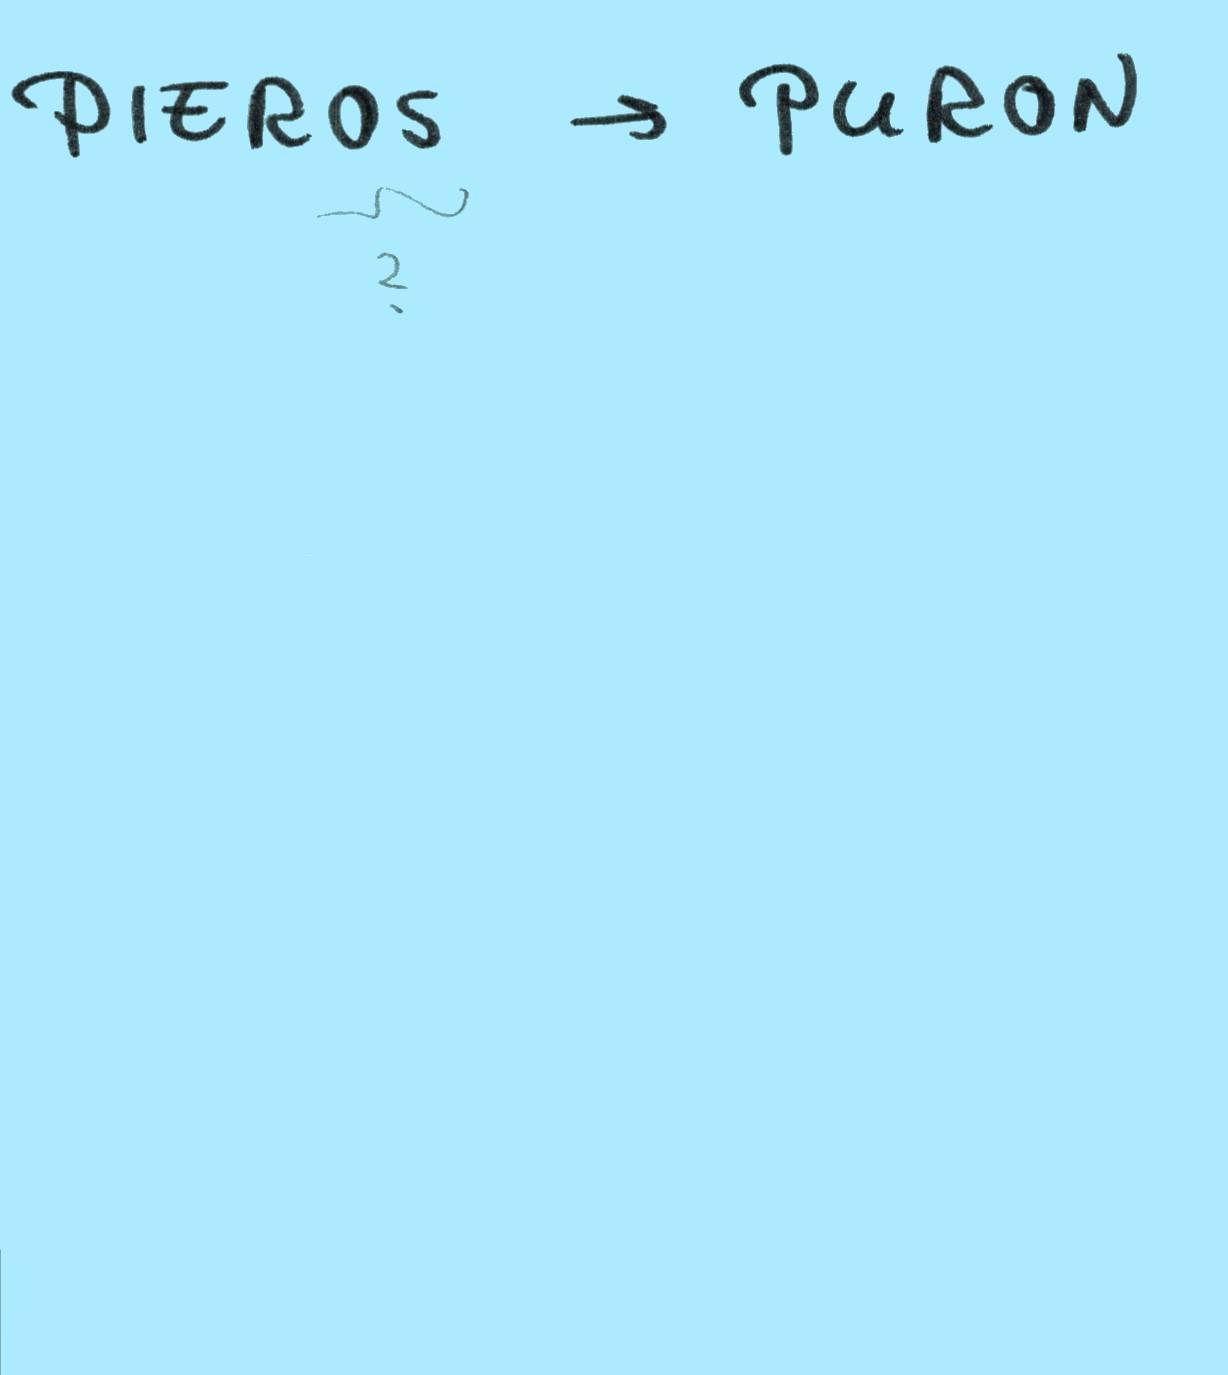 PIEROS → PURON
?